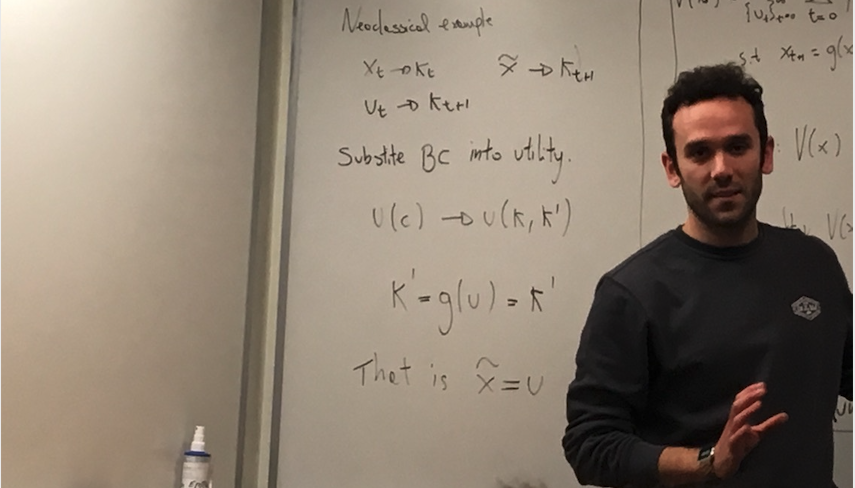 Neoclassical example
xₜ → Kₜ x̃ → Kₜ₊₁
uₜ → Kₜ₊₁
Substite BC into utility.
U(c) → U(K, K')
K' = g(u) = K'
That is x̃ = u
{uₜ}ₜ₌₀ t=0
s.t xₜ₊₁ = g(x
V(x)
V(x